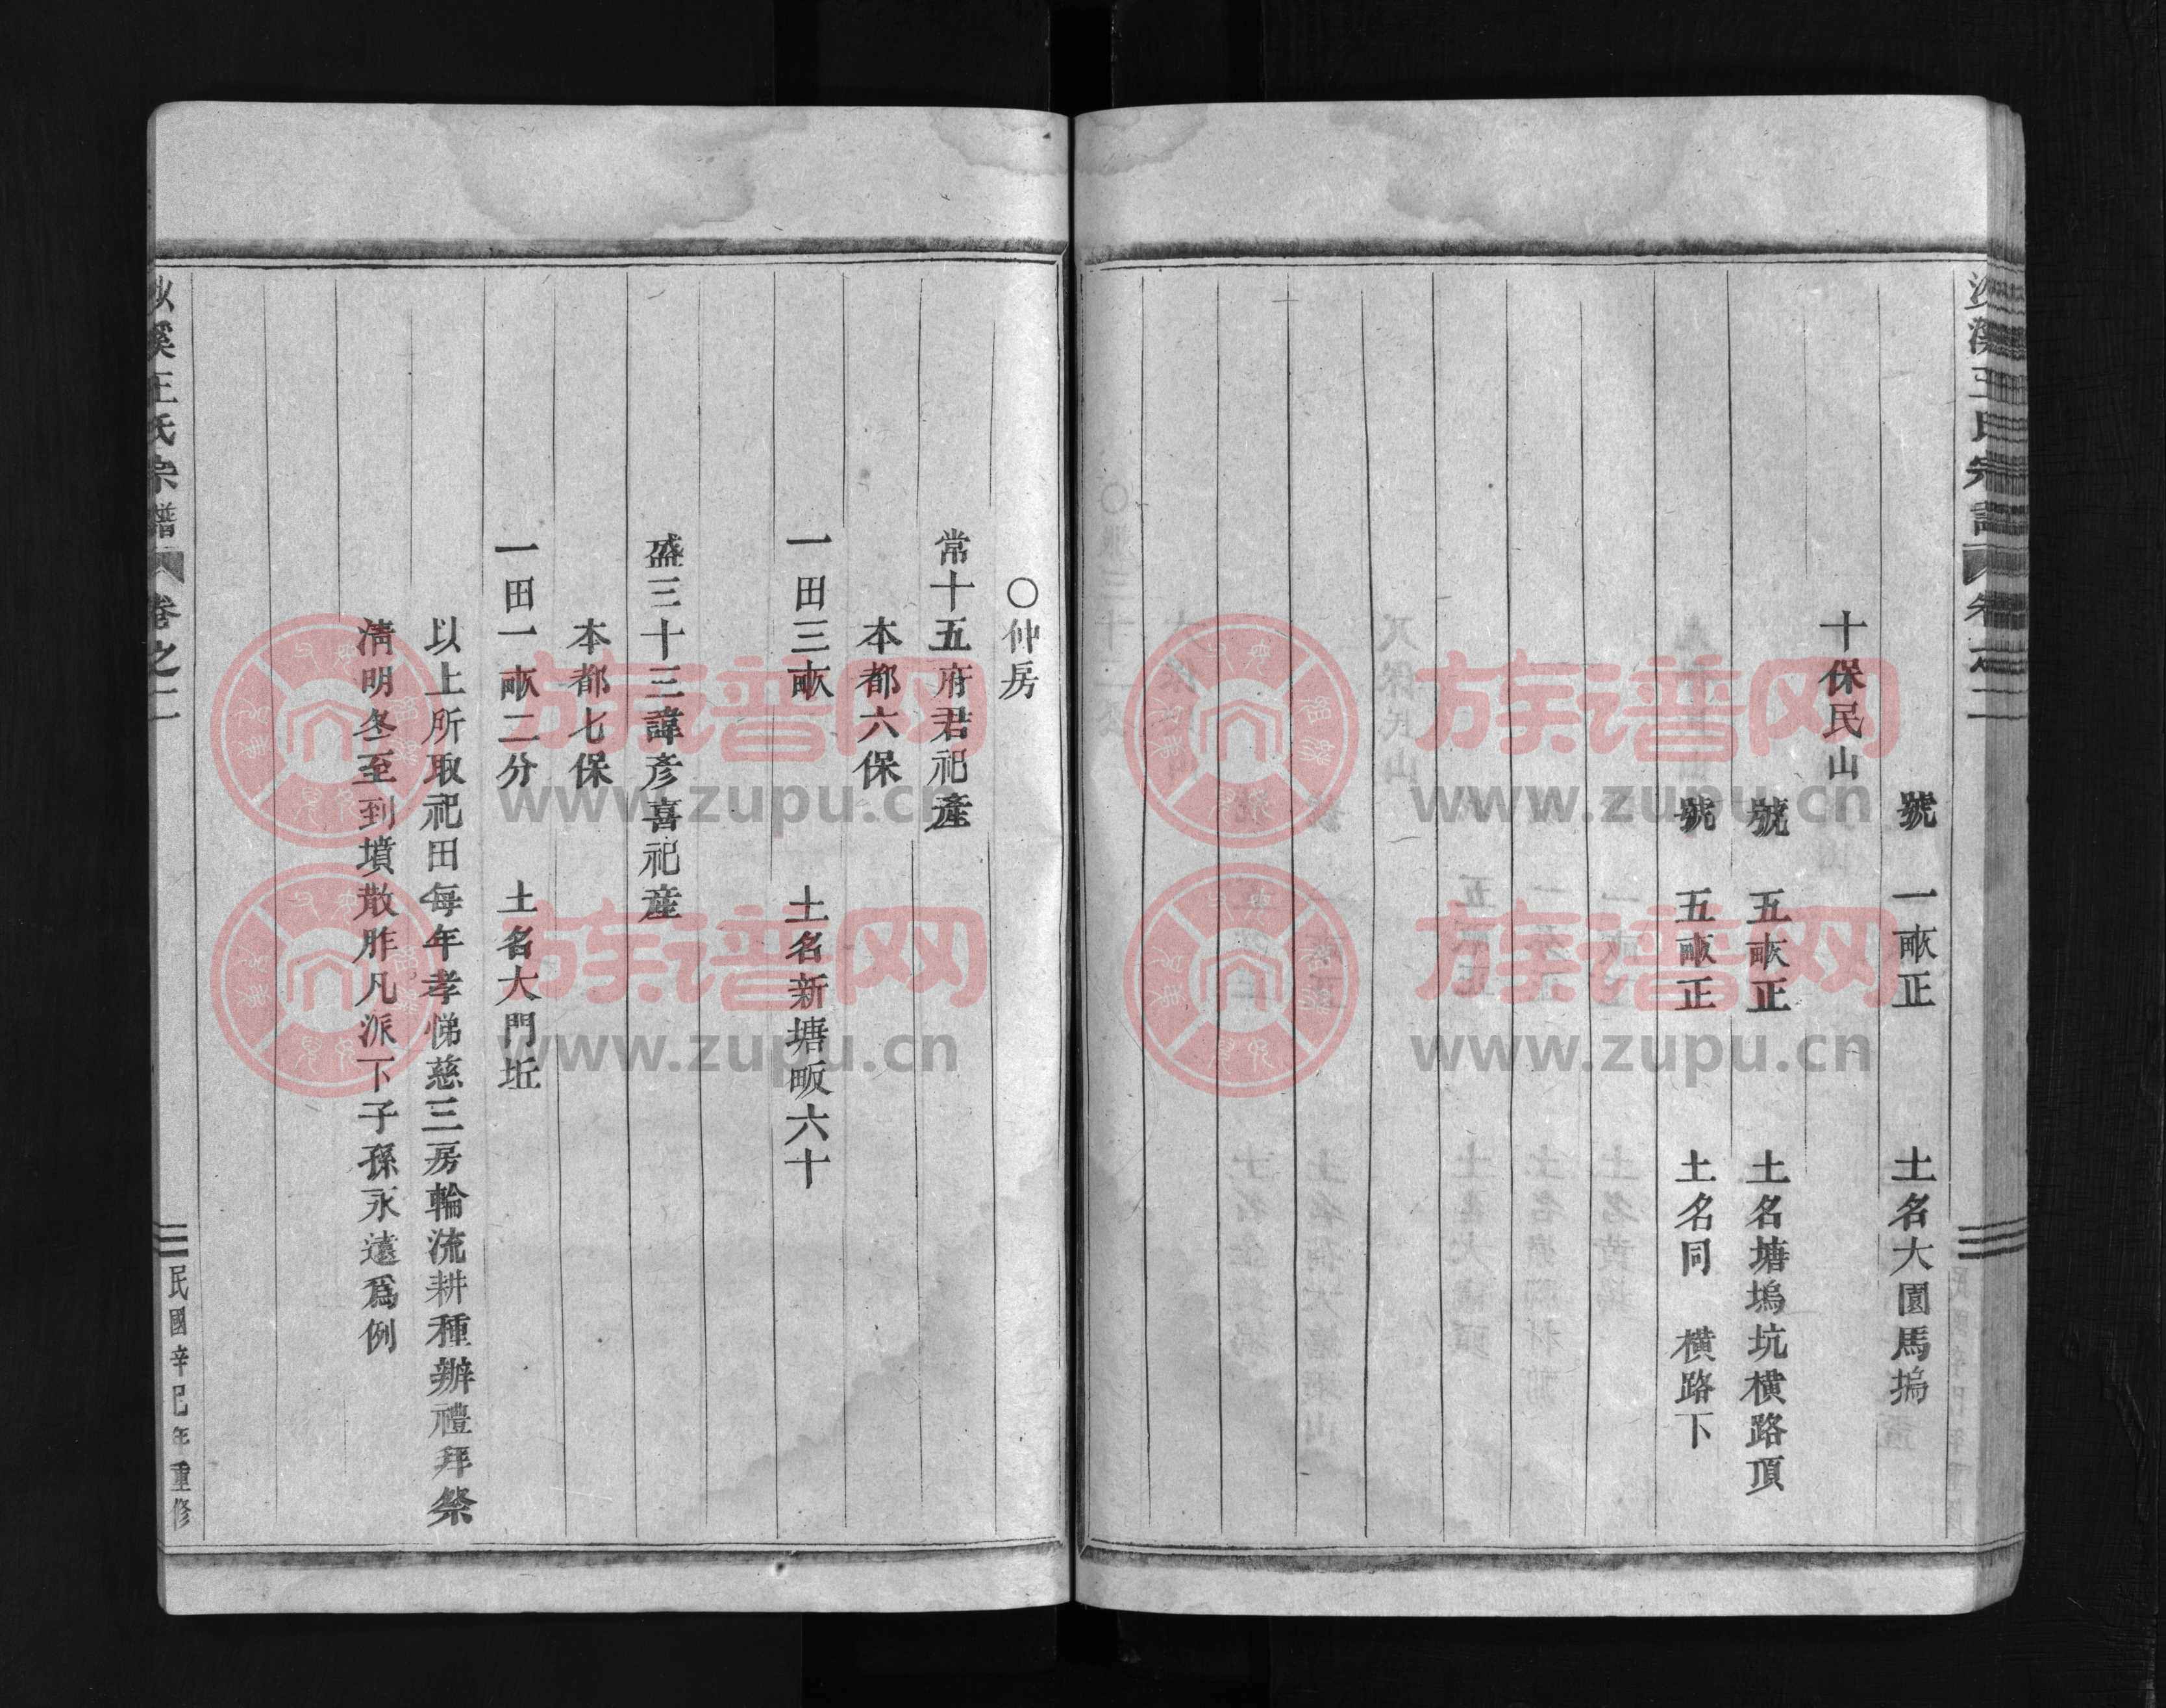 沙溪王氏宗譜 卷之二
號 一畝正 土名大園馬塢
十保民山
號 五畝正 土名塘塢坑橫路頂
號 五畝正 土名同 橫路下
〇仲房
常十五府君祀產
本都六保
一田三畝 土名新塘畈六十
盛三十三諱彥喜祀產
本都七保
一田一畝二分 土名大門坵
以上所取祀田每年孝悌慈三房輪流耕種辦禮拜祭
清明冬至到墳散胙凡派下子孫永遠爲例
沙溪王氏宗譜 卷之二 民國辛巳年重修
族谱网
www.zupu.cn
族谱网
www.zupu.cn
族谱网
www.zupu.cn
族谱网
www.zupu.cn